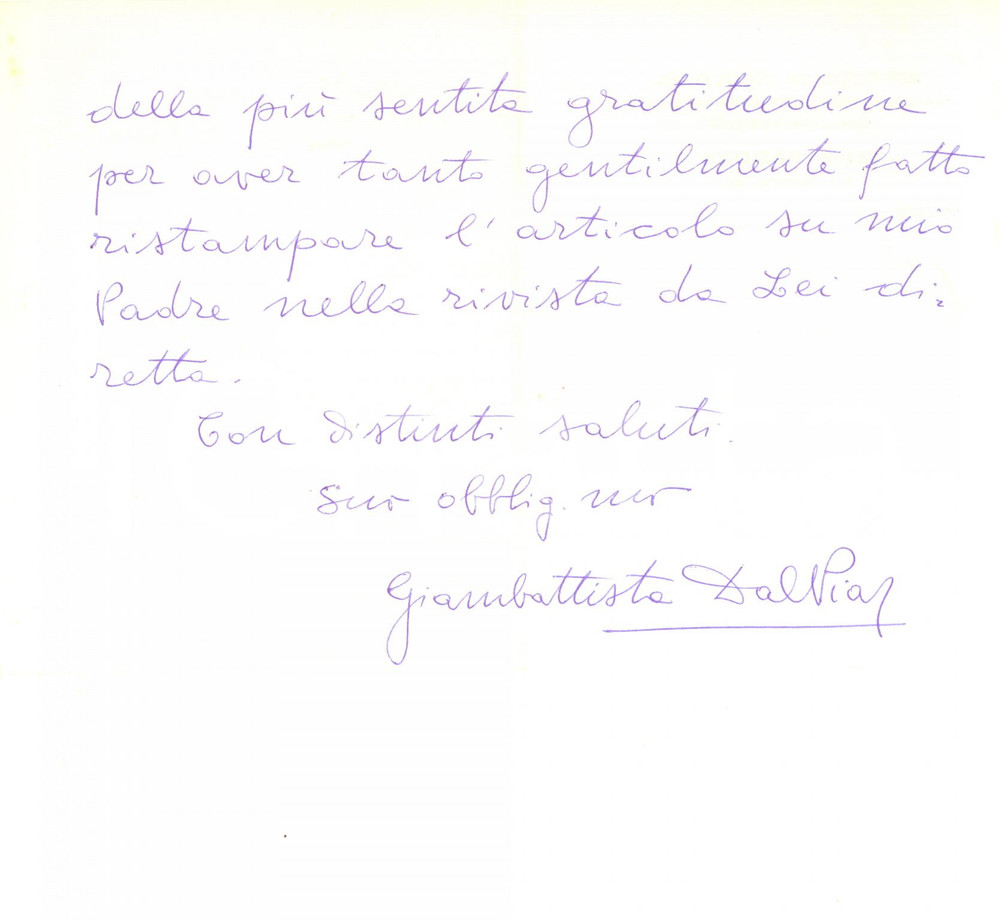 della più sentita gratitudine
per aver tanto gentilmente fatto
ristampare l'articolo su mio
Padre nella rivista da Lei di=
retta.
Con distinti saluti.
Suo obblig.mo
Giambattista Dal Piaz